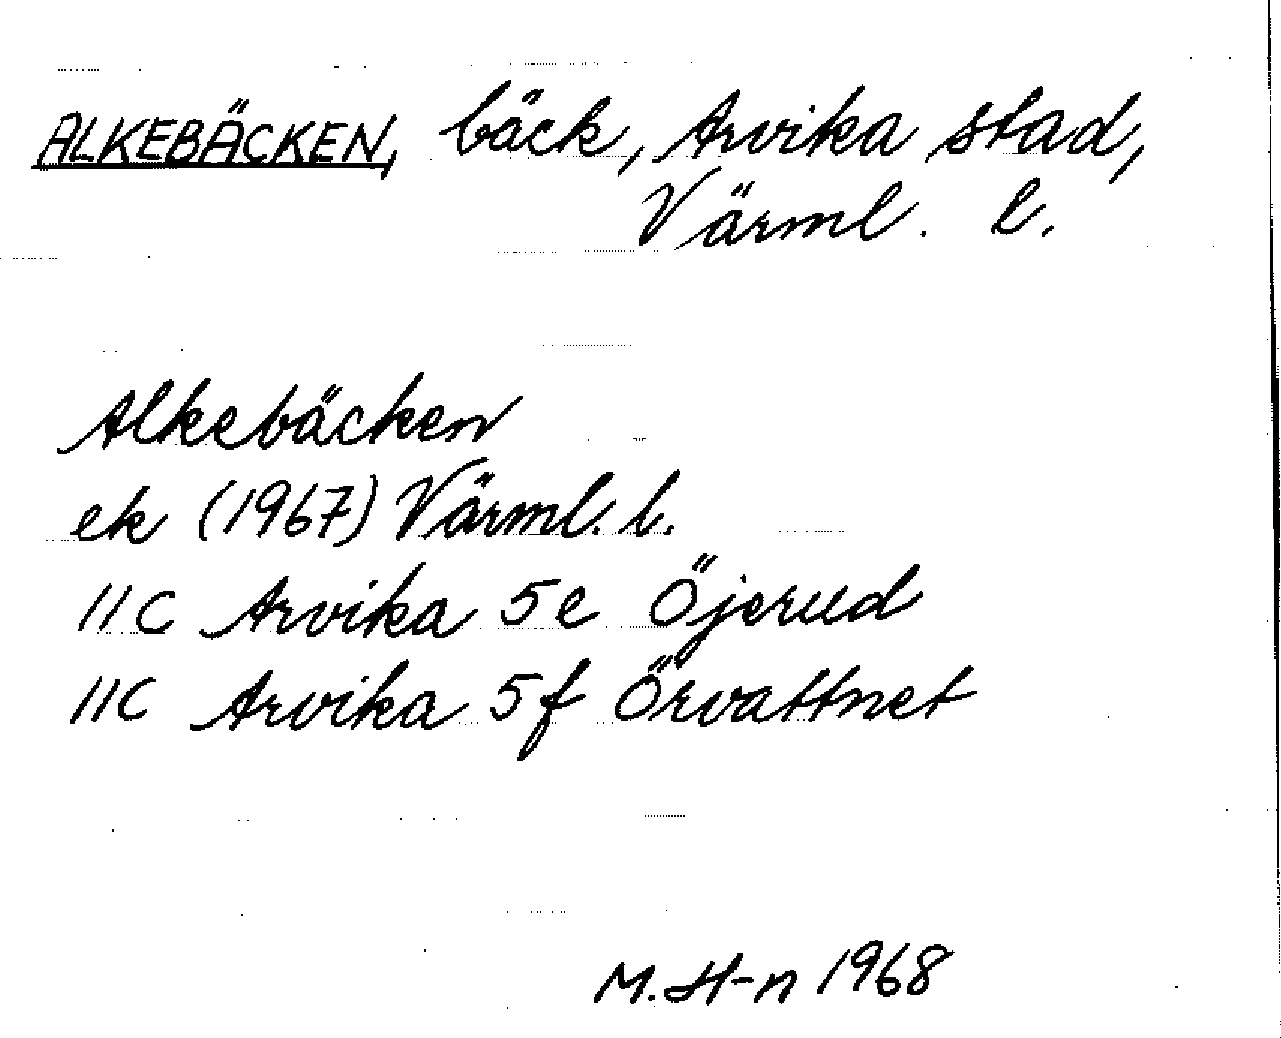 ALKEBÄCKEN, bäck, Arvika stad,
Värml. l.
Alkebäcken
ek (1967) Värml. l.
11C Arvika 5e Öjerud
11C Arvika 5f Örvattnet
M.H-n 1968